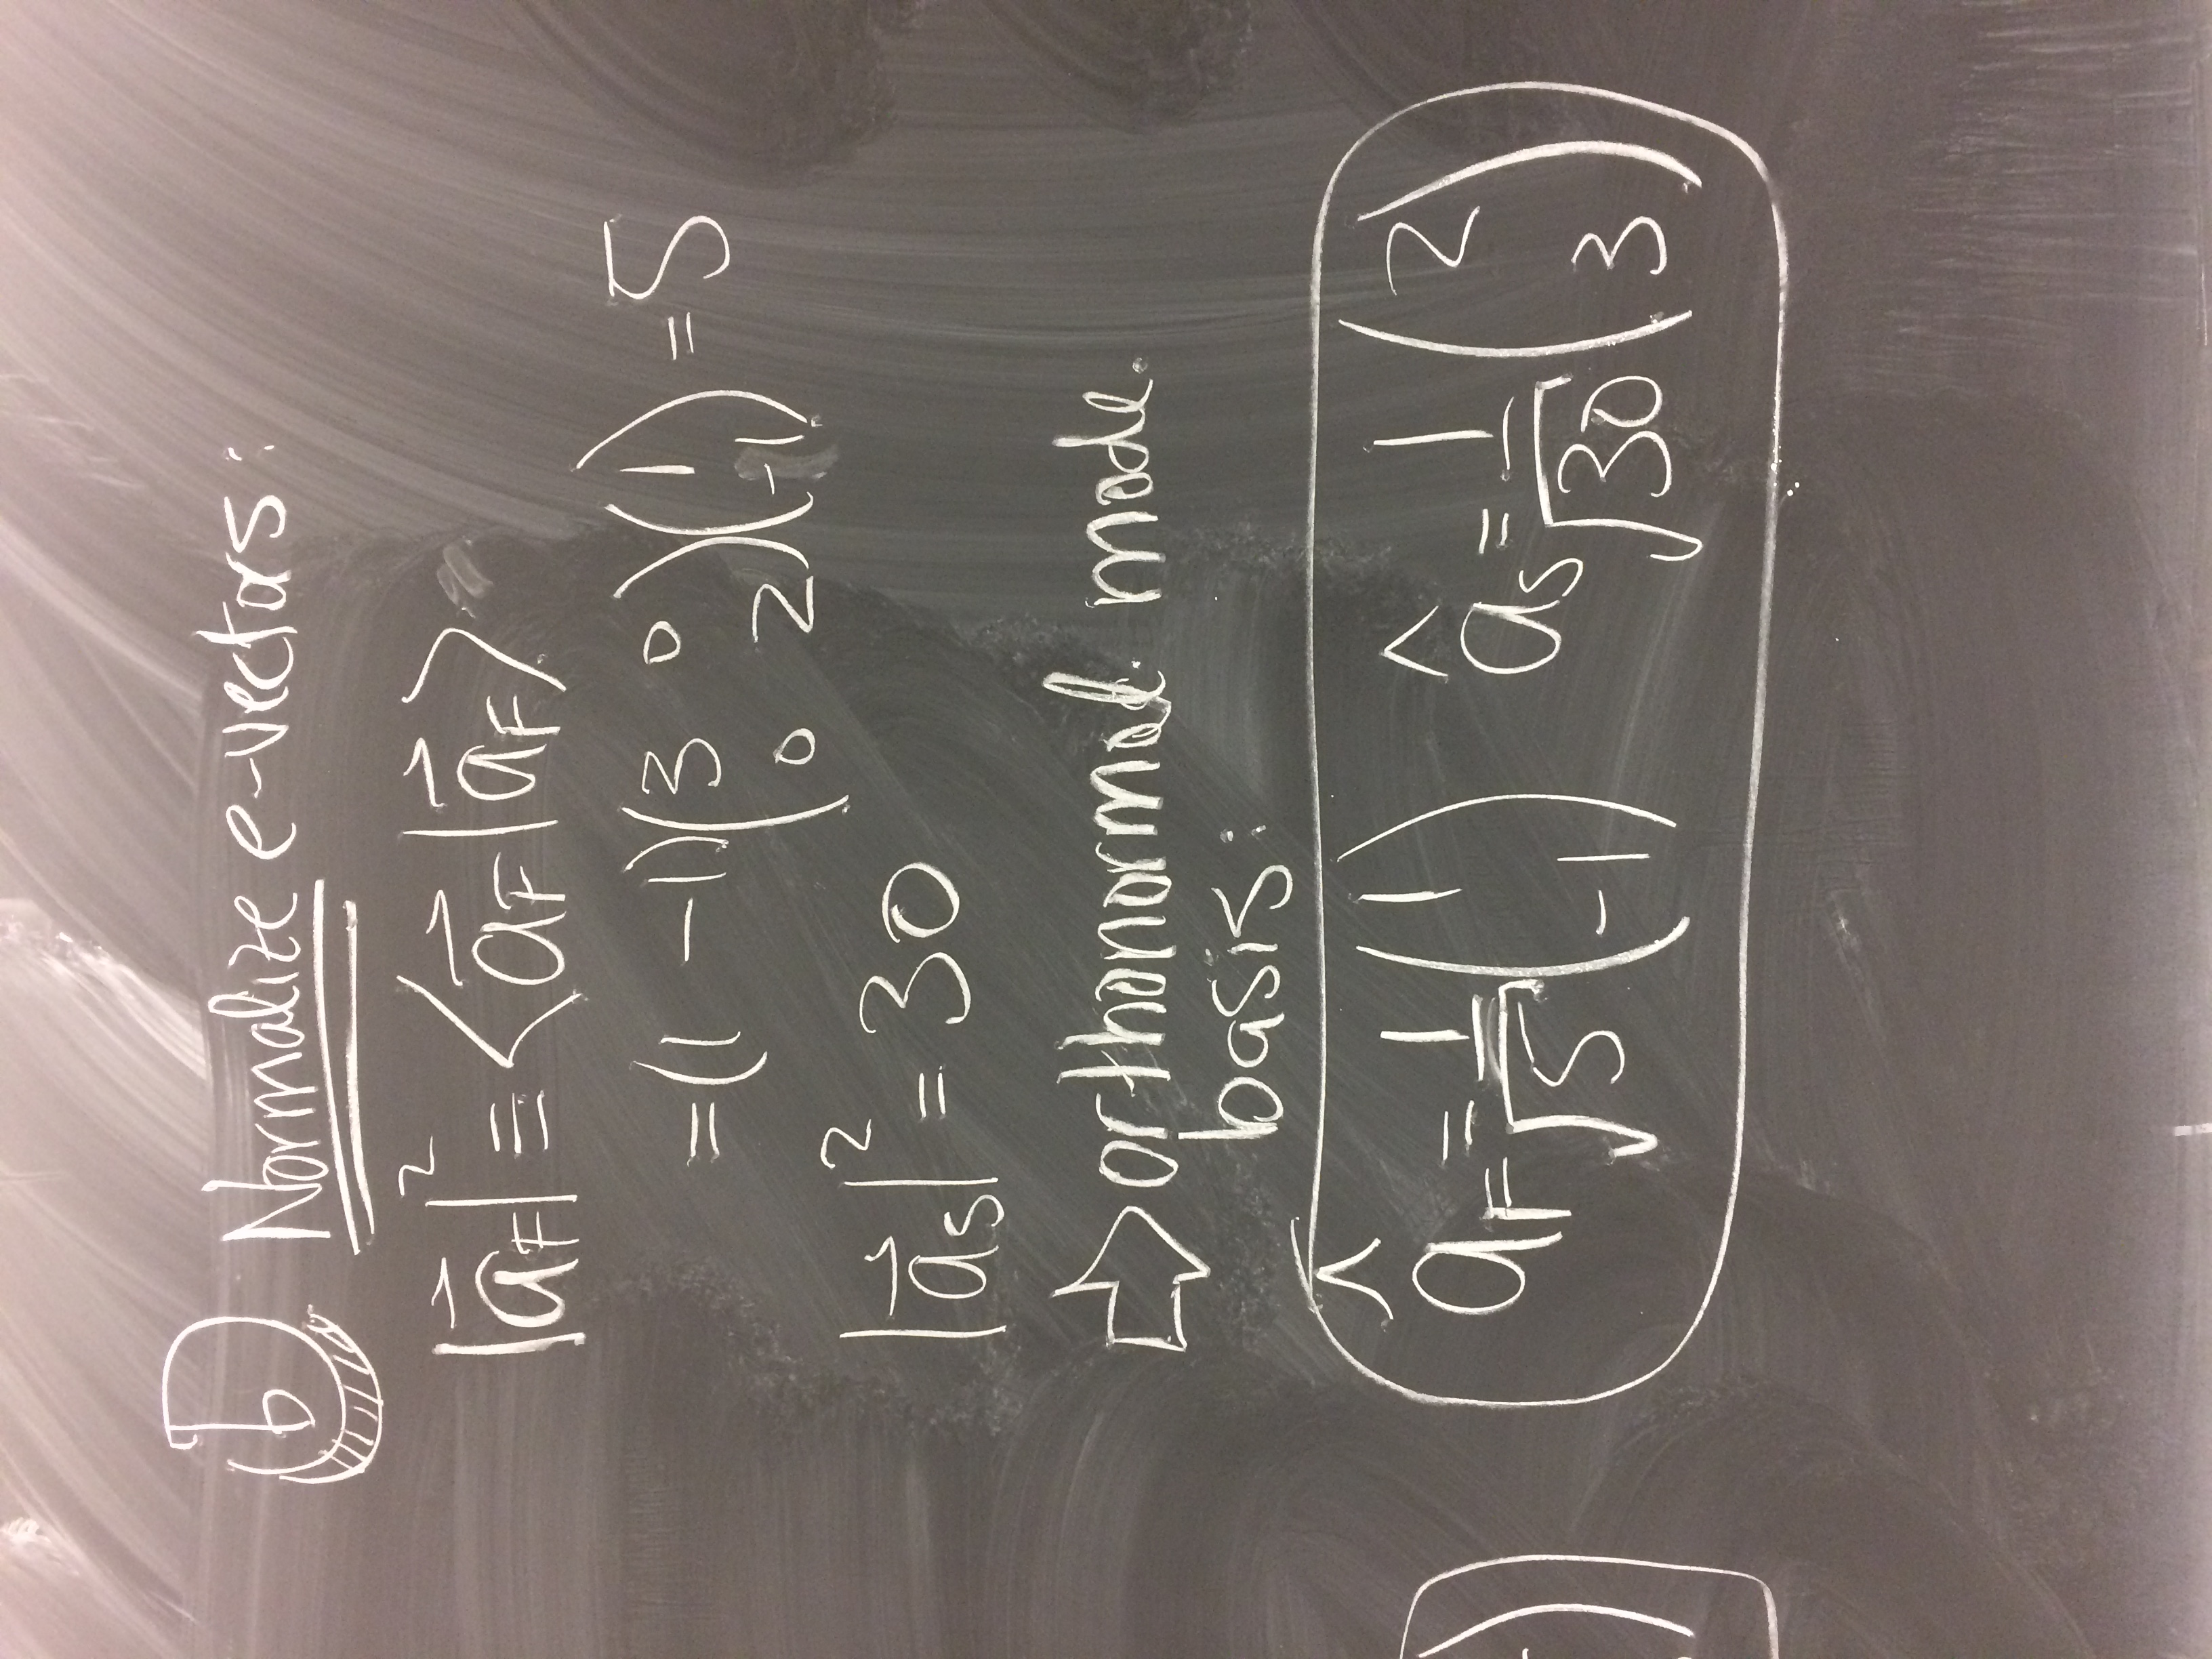 b Normalize e-vectors:
|a⃗F|² ≡ ⟨a⃗F|a⃗F⟩
= (1 -1)(3 0 0 2)(1 -1) = 5
|a⃗s|² = 30
⇒ orthonormal mode
basis:
âF = 1/√5 (1 -1) âs = 1/√30 (2 3)